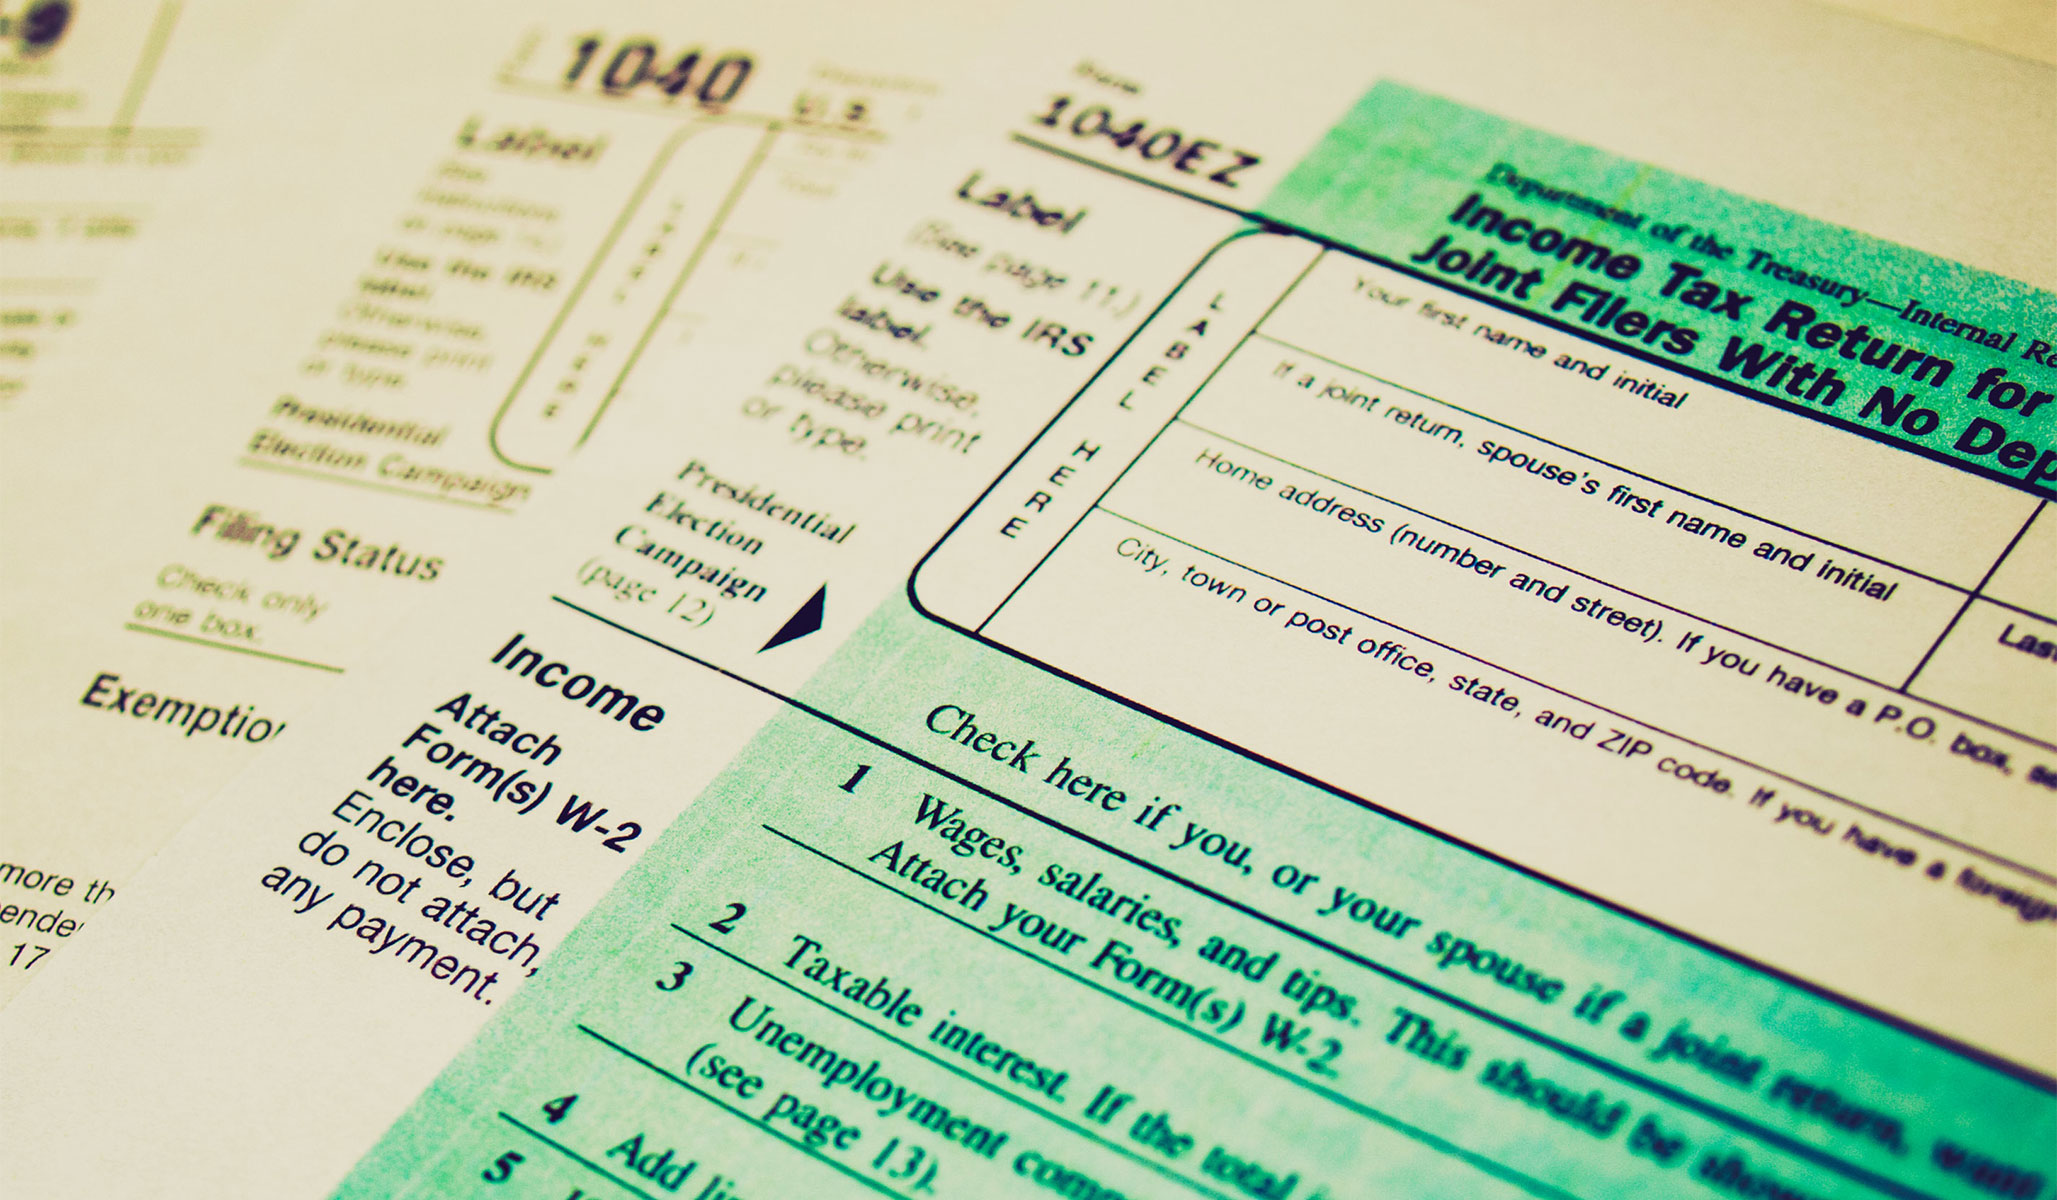 1040
U.S.
Label
Use the IRS
label.
Otherwise,
please print
or type.
Presidential
Election Campaign
Filing Status
Check only
one box.
Exemptio
more th
17
Form
1040EZ
Department of the Treasury—Internal Re
Income Tax Return for
Joint Filers With No Dep
Label
(See page 11.)
Use the IRS
label.
Otherwise,
please print
or type.
LABEL HERE
Your first name and initial
If a joint return, spouse's first name and initial
Last
Home address (number and street). If you have a P.O. box, se
City, town or post office, state, and ZIP code. If you have a foreign
Presidential
Election
Campaign
(page 12)
Check here if you, or your spouse if a joint return, want
Income
Attach
Form(s) W-2
here.
Enclose, but
do not attach,
any payment.
1 Wages, salaries, and tips. This should be show
Attach your Form(s) W-2.
2 Taxable interest. If the total
3 Unemployment comp
(see page 13).
4 Add li
5